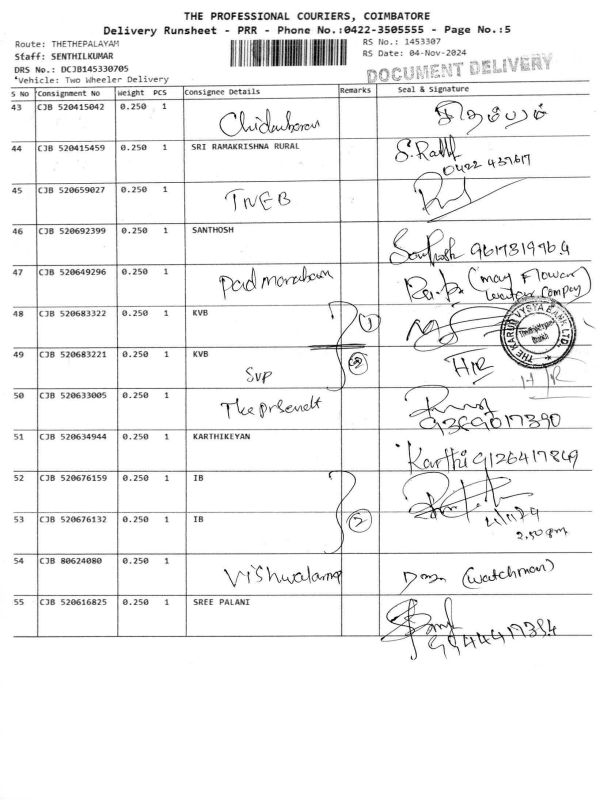 THE PROFESSIONAL COURIERS, COIMBATORE
Delivery Runsheet - PRR - Phone No.:0422-3505555 - Page No.:5
Route: THETHEPALAYAM RS No.: 1453307
Staff: SENTHILKUMAR RS Date: 04-Nov-2024
DRS No.: DCJB145330705 DOCUMENT DELIVERY
*Vehicle: Two Wheeler Delivery
S No Consignment No Weight PCS Consignee Details Remarks Seal & Signature
43 CJB 520415042 0.250 1 Chidambaram சிதம்பரம்
44 CJB 520415459 0.250 1 SRI RAMAKRISHNA RURAL 0422 437617
45 CJB 520659027 0.250 1 TNEB
46 CJB 520692399 0.250 1 SANTHOSH Santhosh 9617819764
47 CJB 520649296 0.250 1 (May Flower
48 CJB 520683322 0.250 1 KVB 1 THE KARUR VYSYA BANK LTD.
49 CJB 520683221 0.250 1 KVB SVP
50 CJB 520633005 0.250 1
51 CJB 520634944 0.250 1 KARTHIKEYAN Karthi 9126417849
52 CJB 520676159 0.250 1 IB
53 CJB 520676132 0.250 1 IB 2 4/11/24
2.50 pm
54 CJB 80624080 0.250 1 (watchman)
55 CJB 520616825 0.250 1 SREE PALANI